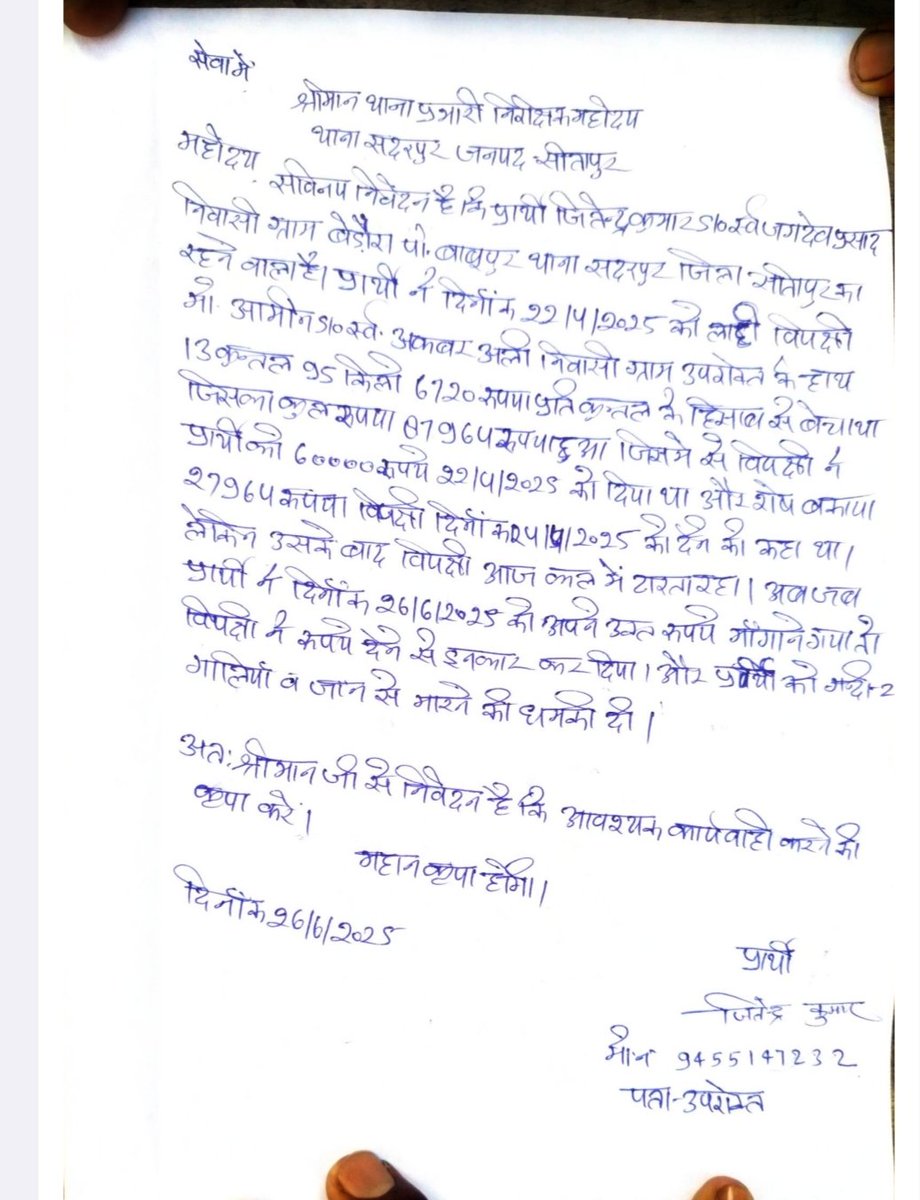 सेवा में
श्रीमान थाना प्रभारी निरीक्षक महोदय
थाना सदरपुर जनपद सीतापुर
महोदय सविनय निवेदन है कि प्रार्थी जितेन्द्र कुमार S/o स्व जगदेव प्रसाद
निवासी ग्राम बेहौरा पो. बाबूपुर थाना सदरपुर जिला सीतापुर का
रहने वाला है। प्रार्थी ने दिनांक 22/4/2025 को लाही विपक्षी
मो. आमीन S/o स्व. अकबर अली निवासी ग्राम उपरोक्त के हाथ
13 कुन्तल 95 किलो 6720 रुपया प्रति कुन्तल के हिसाब से बेचा था
जिसका कुल रुपया 87964 रुपया हुआ जिसमे से विपक्षी ने
प्रार्थी को 60000 रुपये 22/4/2025 को दिया था और शेष बकाया
27964 रुपया विपक्षी दिनांक 24/4/2025 को देने को कहा था।
लेकिन उसके बाद विपक्षी आज कल में टारता रहा। अब जब
प्रार्थी ने दिनांक 26/6/2025 को अपने उक्त रुपये माँगने गया तो
विपक्षी ने रुपये देने से इनकार कर दिया। और प्रार्थी को गन्दी-2
गालियां व जान से मारने की धमकी दी।
अतः श्रीमान जी से निवेदन है कि आवश्यक कार्यवाही करने की
कृपा करें।
महान कृपा होगी।
दिनांक 26/6/2025
प्रार्थी
जितेन्द्र कुमार
मो.न 9455147232
पता-उपरोक्त